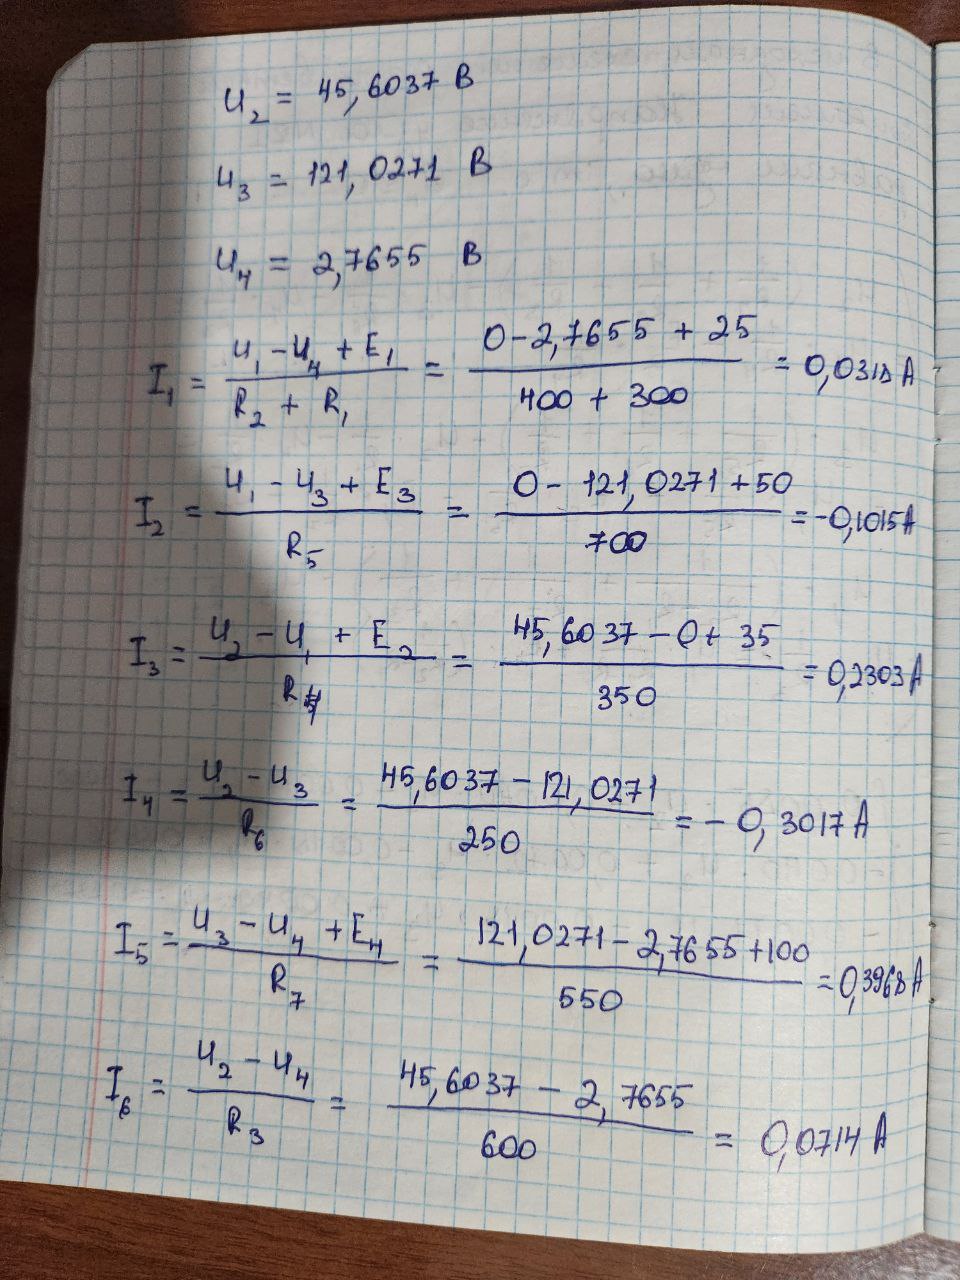 U₂ = 45,6037 В
U₃ = 121,0271 В
U₄ = 2,7655 В
I₁ = (U₁ - U₄ + E₁) / (R₂ + R₁) = (0 - 2,7655 + 25) / (400 + 300) = 0,0318 А
I₂ = (U₁ - U₃ + E₃) / R₅ = (0 - 121,0271 + 50) / 700 = -0,1015 А
I₃ = (U₂ - U₁ + E₂) / R₄ = (45,6037 - 0 + 35) / 350 = 0,2303 А
I₄ = (U₂ - U₃) / R₆ = (45,6037 - 121,0271) / 250 = - 0,3017 А
I₅ = (U₃ - U₄ + E₄) / R₇ = (121,0271 - 2,7655 + 100) / 550 = 0,3968 А
I₆ = (U₂ - U₄) / R₃ = (45,6037 - 2,7655) / 600 = 0,0714 А